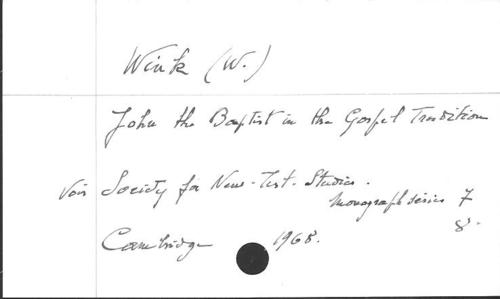 Wink (W.)
John the Baptist in the Gospel Tradition
Voir Society for New-Test. Studies.
Monograph series 7
8°.
Cambridge 1968.